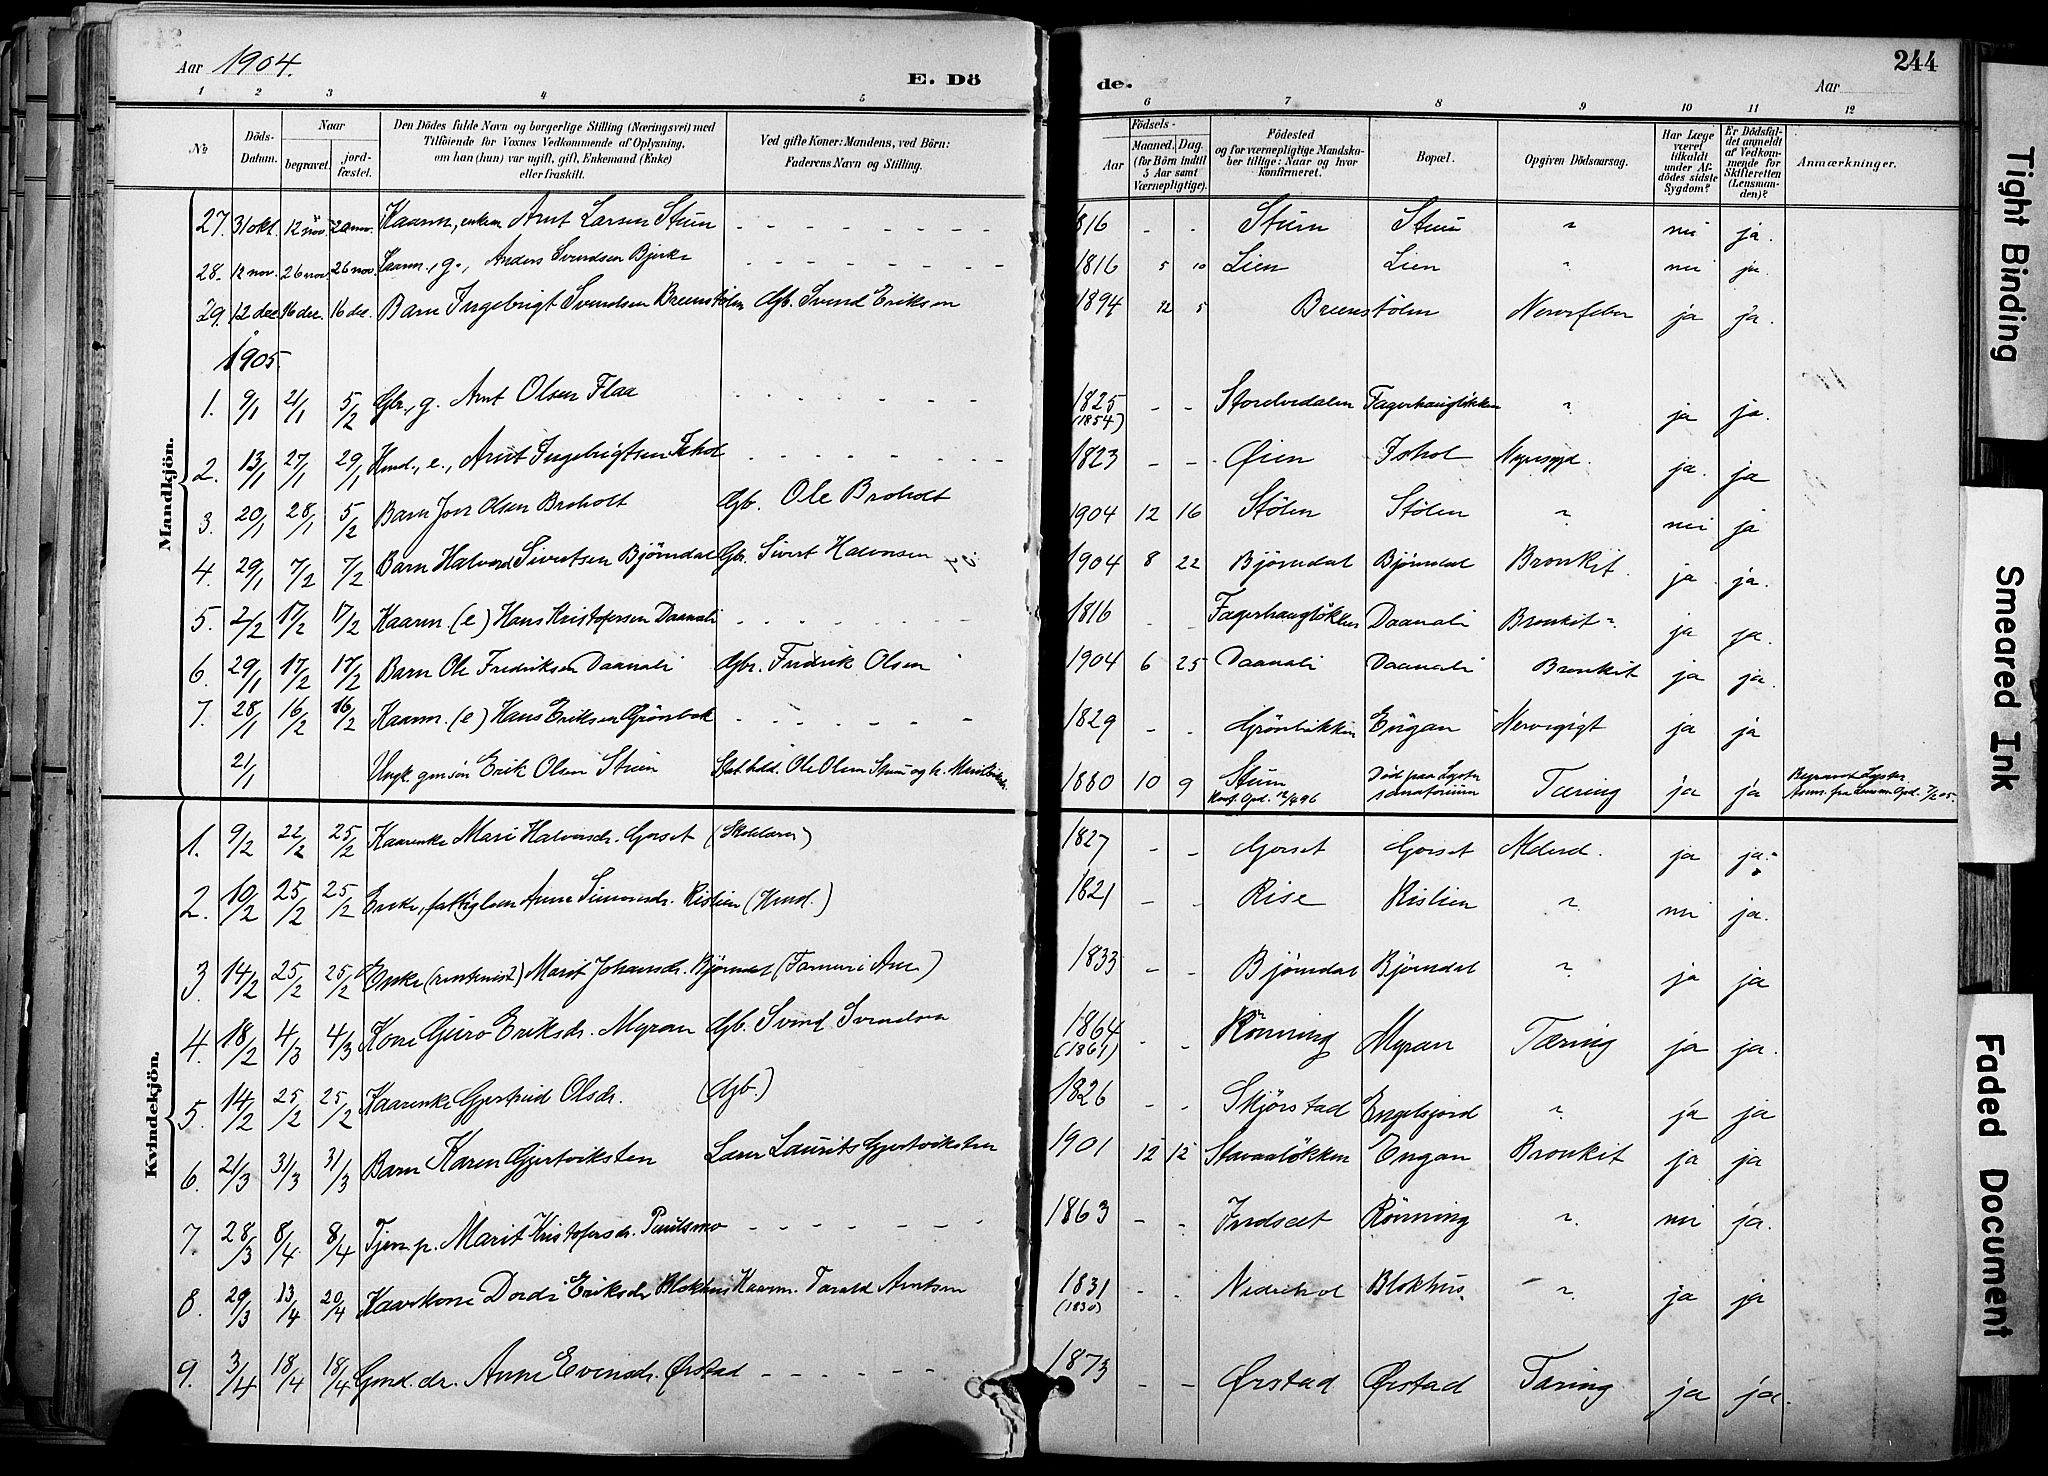 Aar 1904.
E. Dö
de.
Aar
244
1 2 3 4 5 6 7 8 9 10 11 12
No
Döds-Datum.
Naar
begravet.
jord-fæstet.
Den Dödes fulde Navn og borgerlige Stilling (Næringsvei) med
Tilföiende for Voxnes Vedkommende af Oplysning,
om han (hun) var ugift, gift, Enkemand (Enke)
eller fraskilt.
Ved gifte Koner: Mandens, ved Börn:
Faderens Navn og Stilling.
Födsels-
Aar
Maaned. Dag.
(for Börn indtil
5 Aar samt
Værnepligtige).
Födested
og for værnepligtige Mandska-
ber tillige: Naar og hvor
konfirmeret.
Bopæl.
Opgiven Dödsaarsag.
Har Læge
været
tilkaldt
under Af-
dödes sidste
Sygdom?
Er Dödsfal-
det anmeldt
af Vedkom-
mende for
Skifteretten
(Lensman-
den)?
Anmærkninger.
Mandkjön.
27. 31 okt. 12 nov. 20 nov. Kaarm., enkem. Arnt Larsen Stuen - - - 1816 - - Stuen Stuen " nei ja.
28. 12 nov. 26 nov. 26 nov. Kaarm., g., Anders Svendsen Bjerke - - - 1816 5 10 Lien Lien " nei ja
29. 12 dec. 16 dec. 16 dec. Barn Ingebrigt Svendsen Breenstölen Gb. Svend Eriksen 1894 12 5 Breenstölen Nervefeber ja ja.
1905.
1. 9/1 21/1 5/2 Gbr., g. Arnt Olsen Flaa - - - 1825 (1854) - - Storlvedalen Fagerhaugløkken " ja ja.
2. 13/1 27/1 29/1 Hmd., e., Arnt Ingebrigtsen Ishol - - - 1823 - - Øien Ishol Nyresyd. ja. ja
3. 20/1 28/1 5/2 Barn Jon Olsen Broholt Gb. Ole Broholt 1904 12 16 Stölen Stölen " nei ja
4. 29/1 7/2 7/2 Barn Halvord Sivertsen Björndal Gbr. Sivert Halvorsen 1904 8 22 Björndal Björndal Bronkit. ja ja.
5. 2/2 17/2 17/2 Kaarm. (e) Hans Kristofersen Daanali - - - 1816 - - Fagerhaugløkken Daanali Bronkit ". ja ja.
6. 29/1 17/2 17/2 Barn Ole Fredriksen Daanali Gbr. Fredrik Olsen 1904 6 25 Daanali Daanali Bronkit ja ja.
7. 28/1 16/2 16/2 Kaarm. (e) Hans Eriksen Grönbak - - - 1829 - - Grönbakken Engan Nervegigt ja ja
21/1 Ungk. gmsön Erik Olsen Stuen Ole Olsen Stuen og h. Marit 1880 10 9 Stuen Konf. Opd. 12/4 96 Död paa Lyster sanatorium Tæring ja ja Begravet Lyster. Anm. fra Lensm. Opd. 7/2 05.
Kvindekjön.
1. 9/2 22/2 25/2 Kaarenke Mari Halvorsdr. Gorset (Skolelærer) 1827 - - Gorset Gorset Alderd. ja ja.
2. 10/2 25/2 25/2 Enke, fattiglem Anne Simonsdr. Rislien (Hmd.) 1821 - - Rise Rislien " nei ja.
3. 14/2 25/2 25/2 Enke (rentenist) Marit Johansdr. Björndal (Farmer i Am.) 1833 - - Björndal Björndal " ja ja
4. 18/2 4/3 4/3 Kone Guro Eriksdr. Myran Gb. Svend Svendsen 1864 (1861) - - Rönning Myran Tæring ja ja.
5. 14/2 25/2 25/2 Kaarenke Gjertrud Olsdr. (Gb.) 1826 - - Skjörstad Engelsjord " ja ja
6. 21/3 31/3 31/3 Barn Karen Gjertviksten Lærer Laurits Gjertviksten 1901 12 12 Stavaaløkken Engan Bronkit ja ja
7. 28/3 8/4 8/4 Tjen. p. Marit Kristofersdr. Paulsmo - - - 1863 - - Indsæt Rönning " nei ja.
8. 29/3 13/4 20/4 Kaarkone Dordi Eriksdr. Blokhus Kaarm. Tarald Arntsen 1831 (1830) - - Nedrehol Blokhus. " ja ja
9. 3/4 18/4 18/4 Gmd. dr. Anne Evensdr. Ørstad - - - 1873 - - Ørstad Ørstad Tæring ja ja.
Tight Binding
Smeared Ink
Faded Document